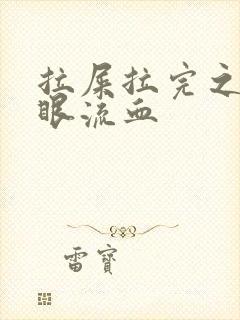 拉屎拉完之
眼流血
雷寶